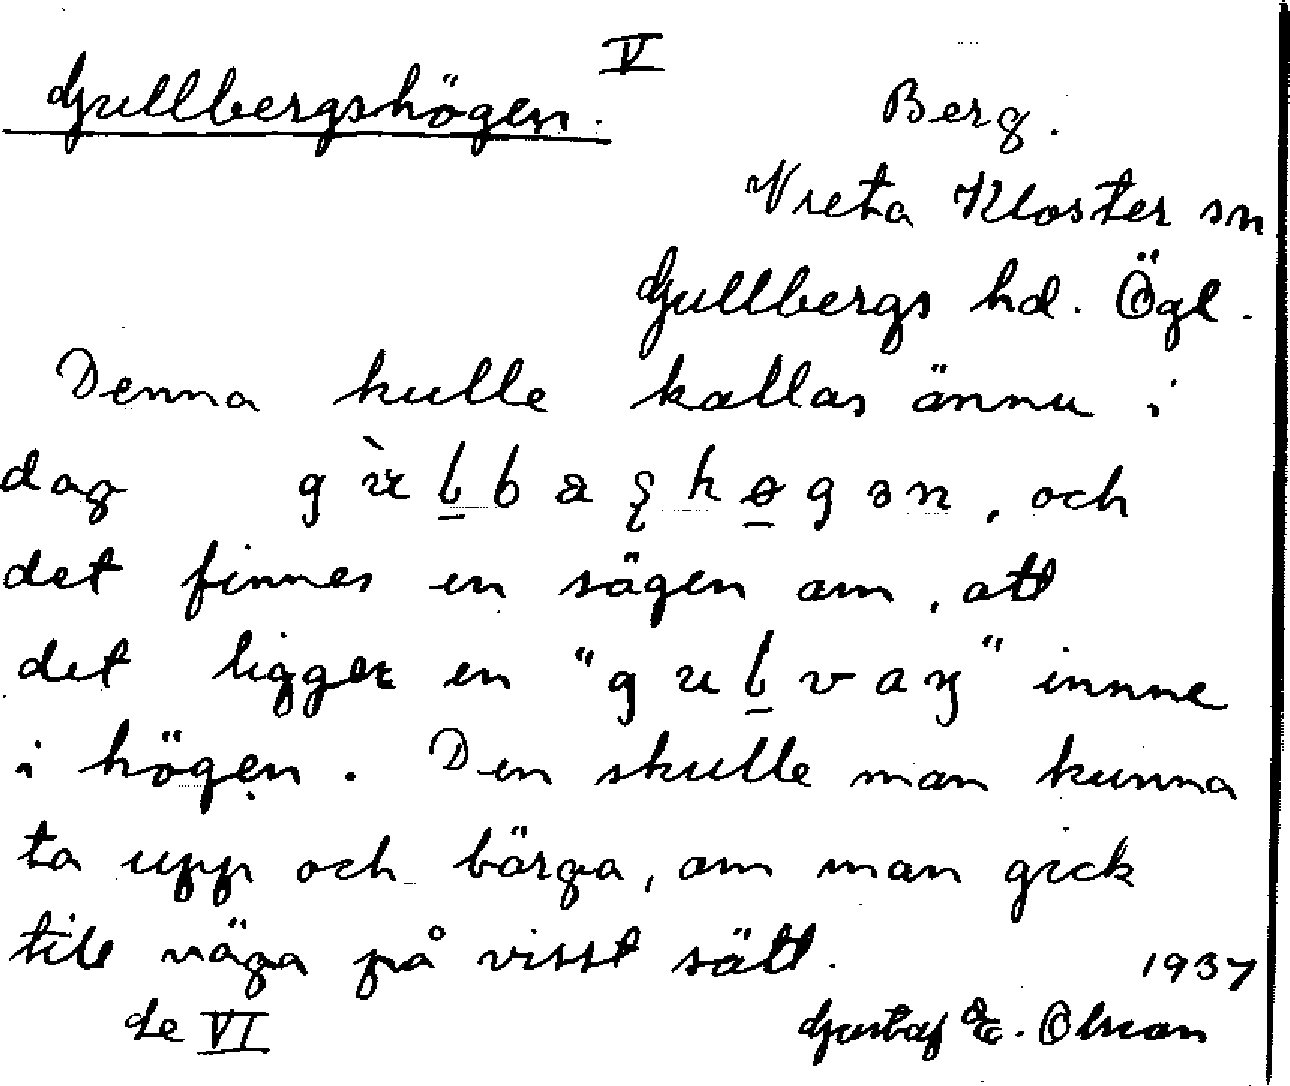 V
Gullbergshögen.
Berg.
Vreta Kloster sn
Gullbergs hd. Ögl.
Denna kulle kallas ännu i
dag , och
det finnes en sägen om, att
det ligger en innne
i högen. Den skulle man kunna
ta upp och bärga, om man gick
till väga på visst sätt.
1937
Se VI
Gustaf E. Olsson